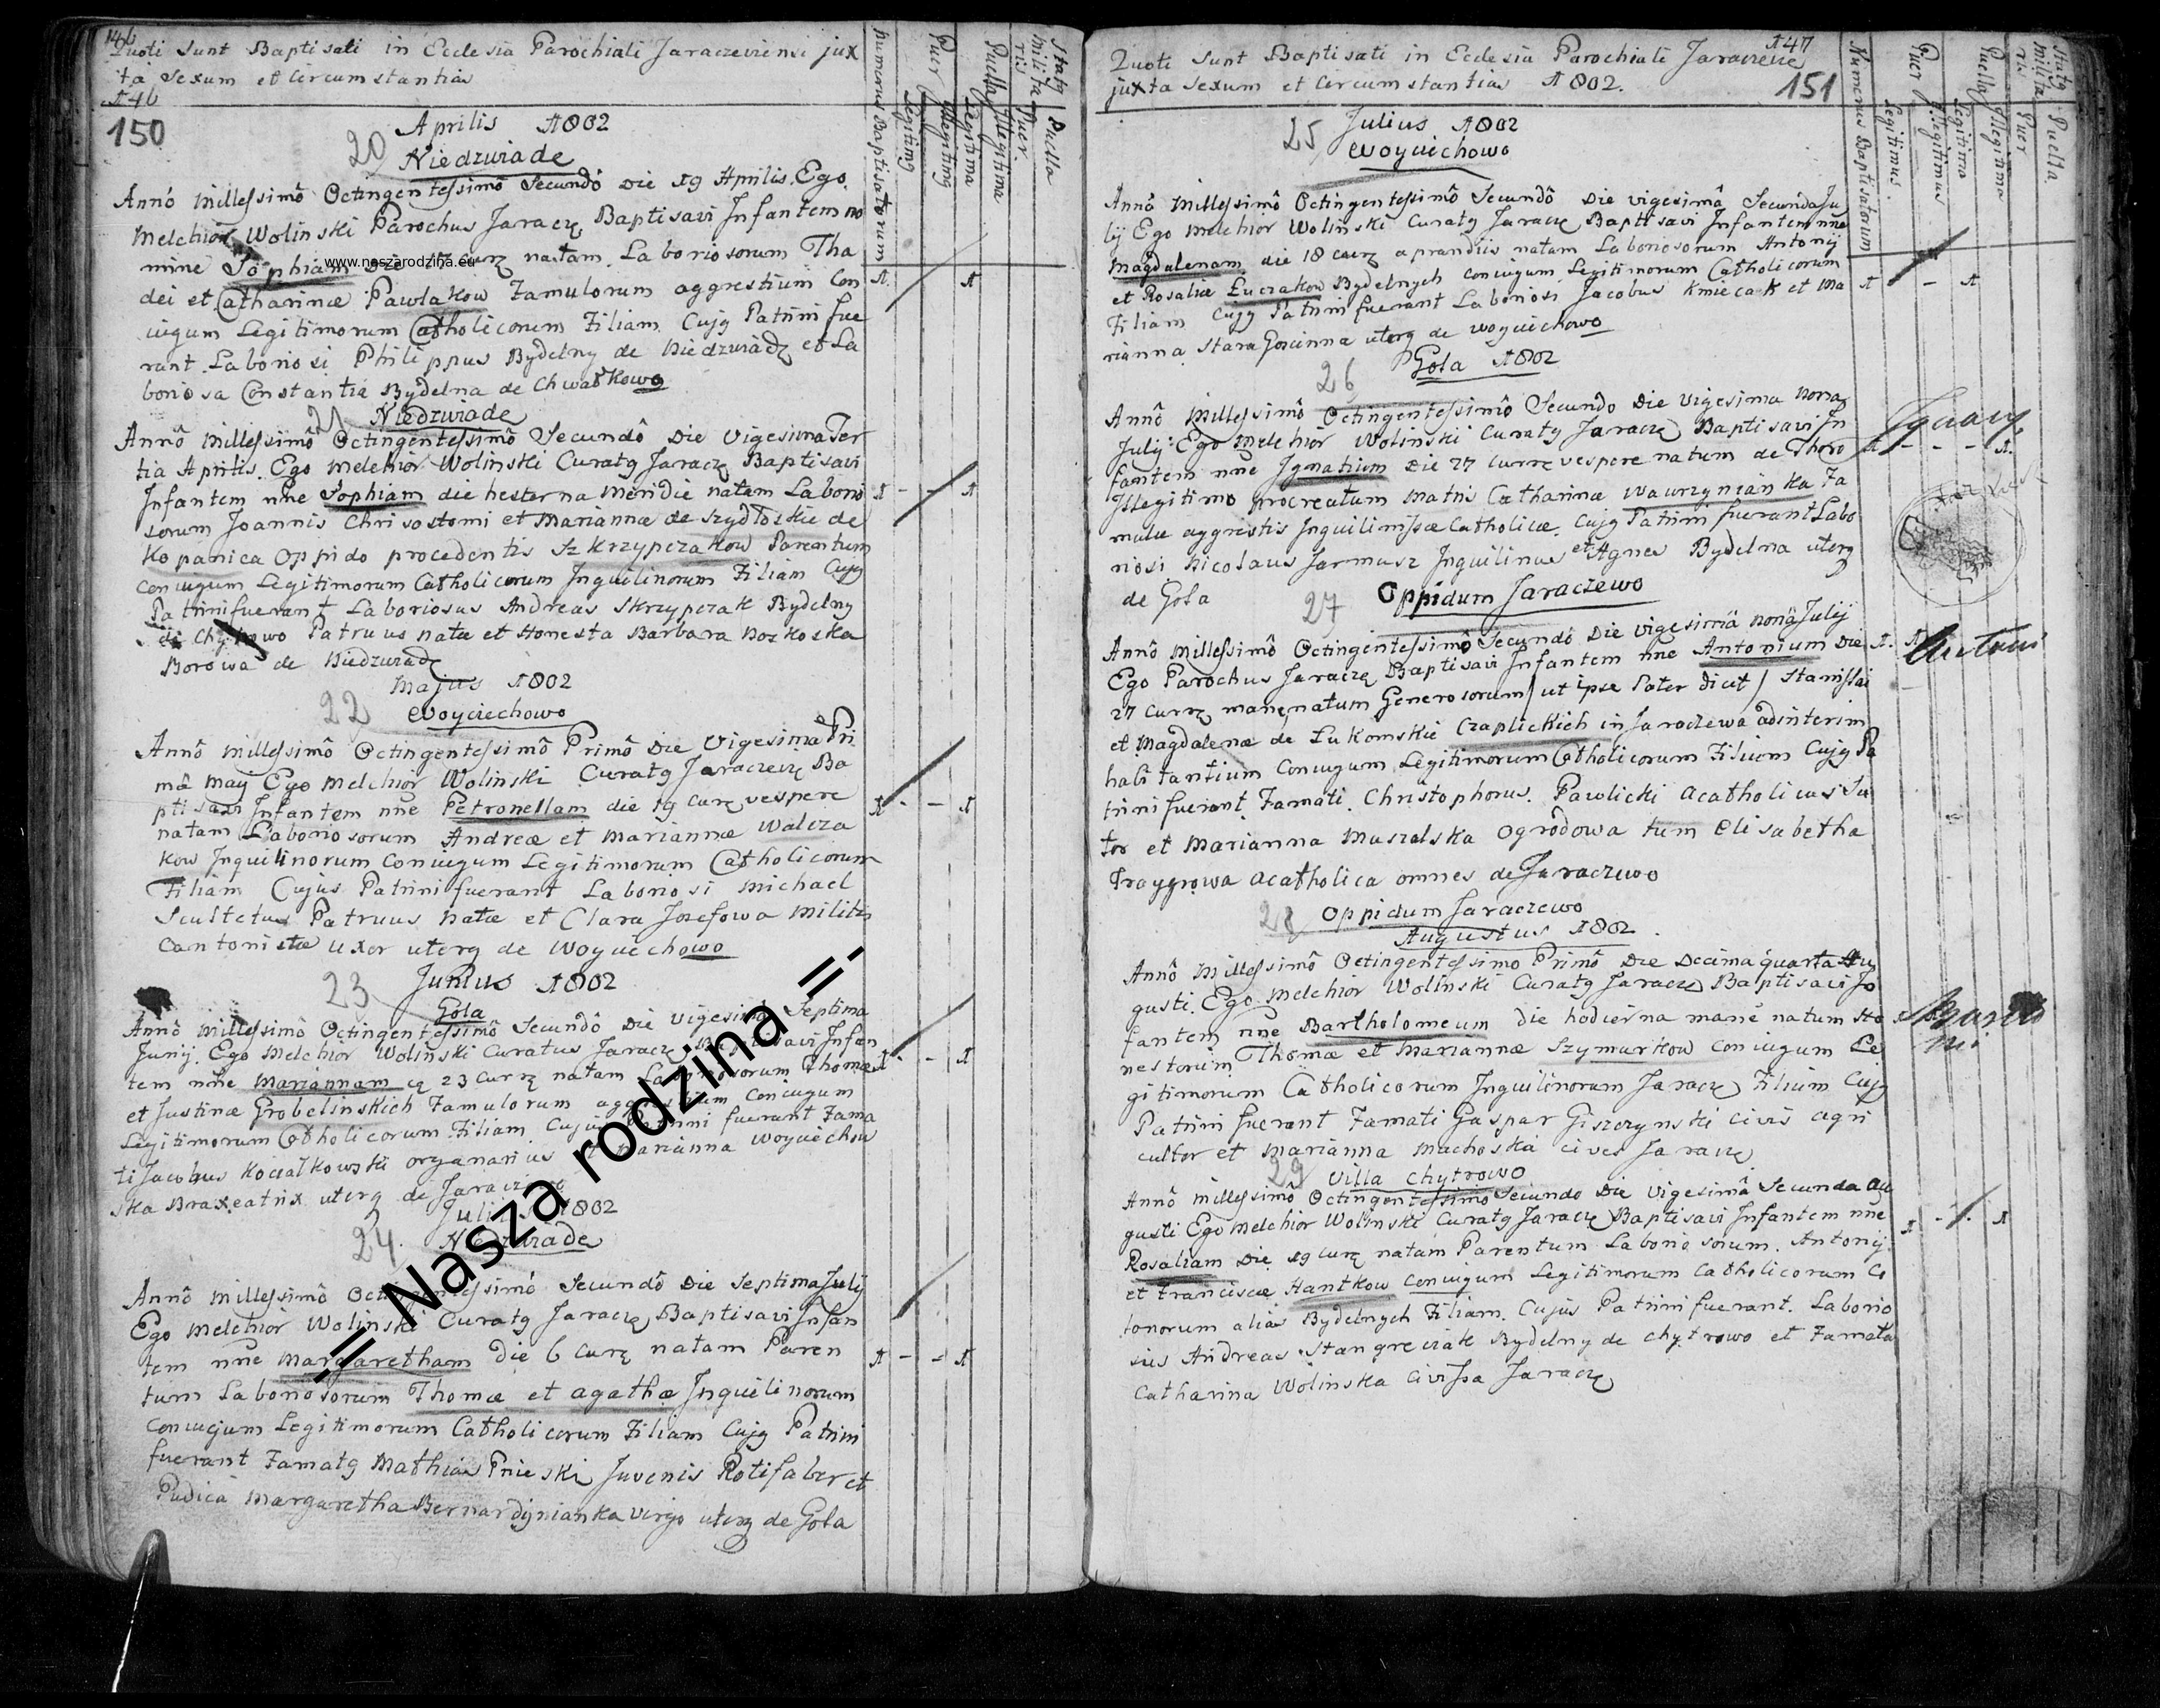 146
Quoti Sunt Baptisati in Ecclesia Parochiali Jaraczeviensi jux
ta Sexum et Circumstantias
146
150
Numerus Baptisatorum
Puer
Legitimg
Illegitimg
Puella
Legitima
Illegitima
Statg
milita
ris
Puer.
Puella
20 Aprilis 1802
Niedzwiade
Annô Millessimô Octingentessimô Secundô Die 19 Aprilis. Ego.
Melchior Wolinski Parochus Jaracz, Baptisavi Infantem no
mine Sophiam natam. Laboriosorum Tha
dei et Catharinæ Pawlakow Famulorum aggrestium Con
iugum Legitimorum Catholicorum Filiam. Cujg Patrini fue
runt. Laboriosi Philippus Bydelny de Niedzwiadz et La
boriosa Constantia Bydelna de Chwałkowo
21 Niedzwiade
Annô Millessimô Octingentessimô Secundô Die Vigesima Ter
tia Aprilis. Ego Melchior Wolinski Curatg Jaracz Baptisavi
Infantem nne Sophiam die hesterna Meridie natam Labori
sorum Joannis Chrisostomi et Mariannæ de Szydłoskie de
Kopanica Oppido procedentis Skrzypczakow Parentum
Coniugum Legitimorum Catholicorum Inquilinorum Filiam Cujg
Patrini fuerant Laboriosus Andreas Skrzypczak Bydelny
Patruus natæ et Honesta Barbara Noskoska
Borowa de Niedzwiadz
Majus 1802
22 Woyciechowo
Annô Millessimô Octingentessimô Primô Die Vigesima Pri
mâ May Ego Melchior Wolinski Curatg Jaraczewz Ba
ptisavi Infantem nne Petronellam die 19 curz vespere
natam Laboriosorum Andreæ et Mariannæ Walcza
kow Inquilinorum Coniugum Legitimorum Catholicorum
Filiam Cujus Patrini fuerant Laboriosi Michael
Scultetus Patruus Natæ et Clara Jozefowa Militis
Cantonistæ Uxor uterq de Woyciechowo
23 Junius 1802
Gola
Annô Millessimô Octingentessimô Secundô Die Vigesima Septima
Junij. Ego Melchior Wolinski Curatus Jaracz Baptisavi Infan
tem nne Mariannam 23 curz natam Laboriosorum Thomæ
et Justinæ Grobelinskich Famulorum aggrestium Coniugum
Legitimorum Catholicorum Filiam. Cujus Patrini fuerant Fama
ti Jacobus Kociałkowski organarius et Marianna Woyciechow
ska Braxeatrix uterq de Jaraczewo
Julius 1802
24. Niedzwiade
Annô Millessimô Octingentessimô Secundô Die Septima Julij
Ego Melchior Wolinski Curatg Jaracz Baptisavi Infan
tem nne Margaretham die 6 curz natam Paren
tum Laboriosorum Thomæ et Agathæ Inquilinorum
Coniugum Legitimorum Catholicorum Filiam Cujg Patrini
fuerant Famatg Mathias Juvenis Rotifaber et
Pudica Margaretha Bernardynianka Virgo uterq de Gola
147
Quoti Sunt Baptisati in Ecclesia Parochiali Jaraczewe
juxta Sexum et Circumstantias 1802.
151
Numerus Baptisatorum
Puer
Legitimus.
Illegitimus
Puella
Legitima
Illegitima
Statg
milita
ris
Puer
Puella
25 Julius 1802
Woyciechowo
Annô Millessimô Octingentessimô Secundô Die vigesimâ Secunda Ju
lij Ego Melchior Wolinski Curatg Jaracz Baptisavi Infantem nne
Magdalenam die 18 curz a prandiis natam Laboriosorum Antonij
et Rosaliæ Łuczakow Bydelnych Coniugum Legitimorum Catholicorum
Filiam Cujg Patrini fuerant Laboriosi Jacobus Kmiecak et Ma
rianna Stara Goscinna uterq de Woyciechowo
26 Gola 1802
Annô Millessimô Octingentessimô Secundo Die vigesima Nona
Julij Ego Melchior Wolinski Curatg Jaracz Baptisavi In
fantem nne Ignatium Die 27 curz vespere natum de Thoro
Illegitimo procreatum Matris Catharinæ Wawrzynianka Fa
mulæ aggrestis Inquilinissæ Catholicæ. Cujg Patrini fuerant Labo
riosi Nicolaus Jarmusz Inquilinus et Agnes Bydelna uterq
de Gola
Ignacy
27 Oppidum Jaraczewo
Annô Millessimô Octingentessimô Secundô Die vigesimâ nonâ Julij
Ego Parochus Jaracz Baptisavi Infantem nne Antonium Die
27 curz mane natum Generosorum / ut ipse Pater dicit / Stanislai
et Magdalenæ de Łukomskie Czaplickich in Jaraczewa adinterim
habitantium Coniugum Legitimorum Catholicorum Filium Cujg Pa
trini fuerant. Famati. Christophorus. Pawlicki Acatholicus Su
tor et Marianna Muszalska Ogrodowa tum Elisabetha
Acatholica omnes de Jaraczewo
Antoni
28 Oppidum Jaraczewo
Augustus 1802.
Annô Millessimô Octingentessimo Primô Die Decima quarta Au
gusti. Ego Melchior Wolinski Curatg Jaracz Baptisavi In
fantem nne Bartholomeum die hodierna mane natum Ho
nestorum Thomæ et Mariannæ Szymurkow coniugum Le
gitimorum Catholicorum Inquilinorum Jaracz Filium Cujg
Patrini fuerant Famati Gaspar Giszczynski Civis agri
cultor et Marianna Machoska cives Jaracz
29 Villa Chytrowo
Annô Millessimô Octingentessimô Secundo Die Vigesimâ Secunda Au
gusti Ego Melchior Wolinski Curatg Jaracz Baptisavi Infantem nne
Rosaliam Die 19 curz natam Parentum Laboriosorum. Antonij
et Franciscæ Hantkow coniugum Legitimorum Catholicorum Co
lonorum alias Bydelnych Filiam. Cujus Patrini fuerant. Laborio
sus Andreas Stangreciak Bydelny de Chytrowo et Famata
Catharina Wolinska Civissa Jaracz
www.naszarodzina.eu
.=! Nasza rodzina =!.